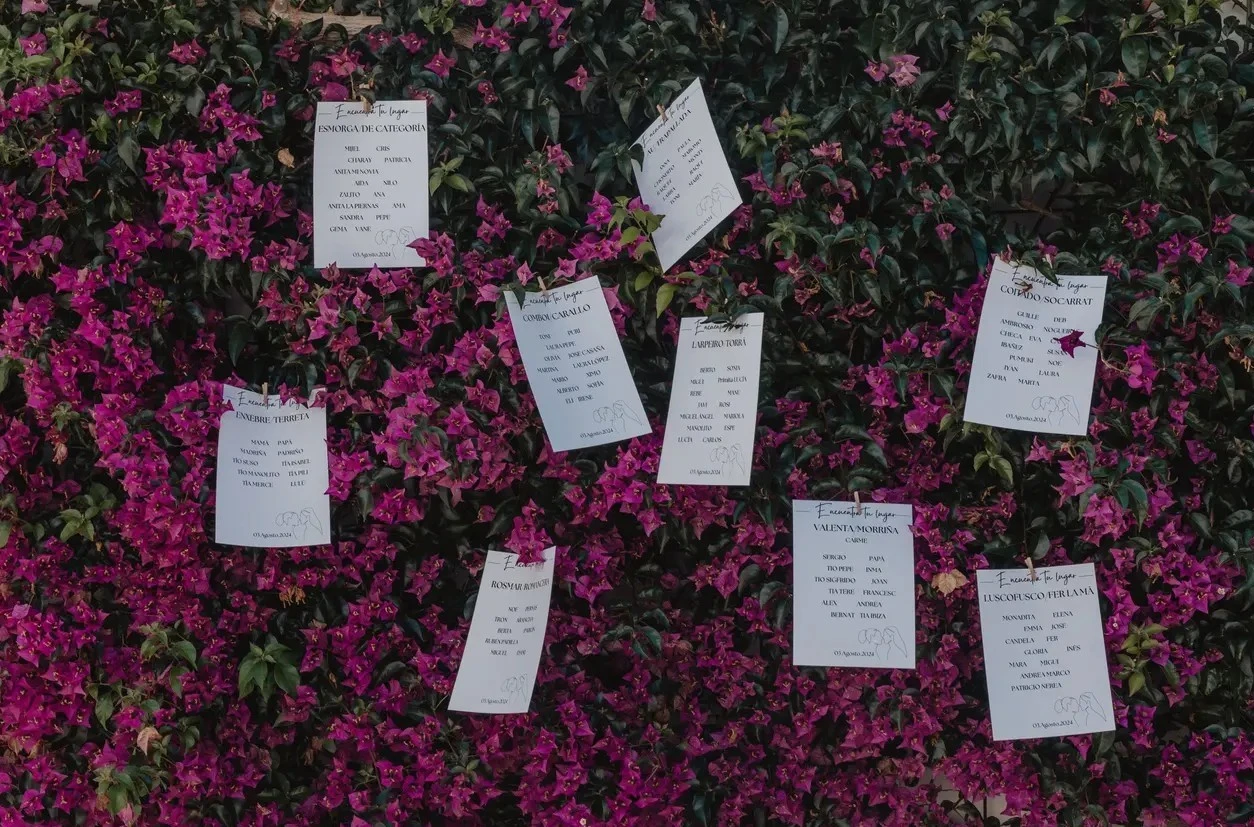 Encuentra tu lugar
ESMORGA/DE CATEGORÍA
MIJEL CRIS
CHARAY PATRICIA
ANITA MI NOVIA
AIDA NILO
ZALITO ANA
ANITA LA PIERNAS AMA
SANDRA PEPE
GEMA VANE
03.Agosto.2024
Encuentra tu lugar
PAULA
MARIA
03.Agosto.2024
Encuentra tu lugar
COMBOI/CARALLO
TOSE PURI
LAURA PEPE
OLIVIA JOSE CASAÑA
MARTINA LAURA LÓPEZ
MARIO NIMO
ALBERTO SOFÍA
ELI IRENE
03.Agosto.2024
Encuentra tu lugar
LARPEIRO/TORRÀ
BERTO SONIA
MIGUI Peluqui LUCÍA
BEBE MANU
JAVI ROSI
MIGUEL ÁNGEL MARIOLA
MANOLITO ESPE
LUCÍA CARLOS
03.Agosto.2024
Encuentra tu lugar
COITADO/SOCARRAT
GUILLE DEB
AMBROSIO NOGUE
CHECA EVA
IBAÑEZ
PUMUKI NOE
IVAN LAURA
ZAFRA MARTA
03.Agosto.2024
Encuentra tu lugar
ENXEBRE/TERRETA
MAMÁ PAPÁ
MADRIÑA PADRIÑO
TÍO SUSO TÍA ISABEL
TÍO MANOLITO TÍA PILI
TÍA MERCE LULÚ
03.Agosto.2024
Encuentra tu lugar
VALENTA/MORRIÑA
CARME
SERGIO PAPÁ
TÍO PEPE INMA
TÍO SIGFRIDO JOAN
TÍA TERE FRANCESC
ALEX ANDREA
BERNAT TÍA IBIZA
03.Agosto.2024
ROSMAR
NOE
TRON
BERTA
RUBEN PADILLA
MIGUEL
03.Agosto.2024
Encuentra tu lugar
LUSCOFUSCO/FER LA MÀ
MONADITA ELENA
EMMA JOSE
CANDELA FER
GLORIA INÉS
MARA MIGUI
ANDREA MARCO
PATRICIO NEREA
03.Agosto.2024